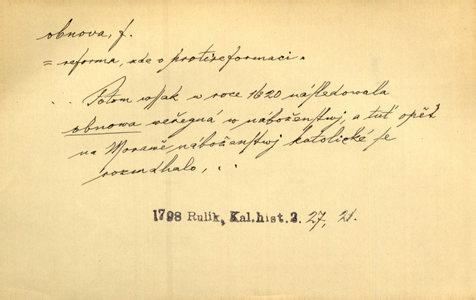 obnova, f.
= reforma, zde o protireformaci.
.. Potom wssak w roce 1620 následowala
obnowa weřegná w náboženstwj, a tuť opět
na Morawě náboženstwj katolické se
rozmáhalo, ..
1798 Rulík, Kal.hist.2. 27, 21.